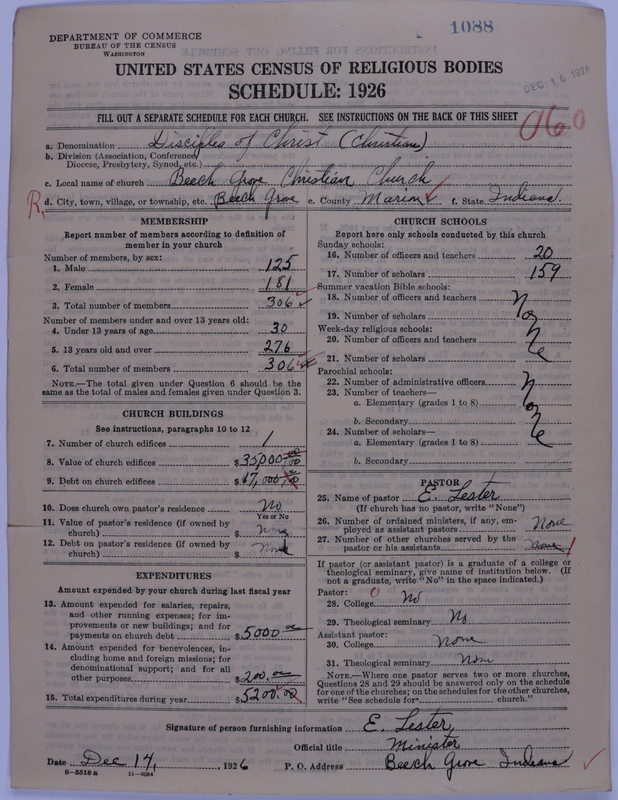 1088
DEPARTMENT OF COMMERCE
BUREAU OF THE CENSUS
WASHINGTON
UNITED STATES CENSUS OF RELIGIOUS BODIES
SCHEDULE: 1926
DEC 16 1926
FILL OUT A SEPARATE SCHEDULE FOR EACH CHURCH. SEE INSTRUCTIONS ON THE BACK OF THIS SHEET
060
a. Denomination Disciples of Christ (Christian)
b. Division (Association, Conference, Diocese, Presbytery, Synod, etc.)
c. Local name of church Beech Grove Christian Church
R. d. City, town, village, or township, etc. Beech Grove e. County Marion f. State Indiana
MEMBERSHIP
Report number of members according to definition of
member in your church
Number of members, by sex:
1. Male 125
2. Female 181
3. Total number of members 306
Number of members under and over 13 years old:
4. Under 13 years of age 30
5. 13 years old and over 276
6. Total number of members 306
NOTE.—The total given under Question 6 should be
same as the total of males and females given under Question 3.
CHURCH BUILDINGS
See instructions, paragraphs 10 to 12
7. Number of church edifices 1
8. Value of church edifices $35,000.00
9. Debt on church edifices $17,000.00
10. Does church own pastor's residence No
Yes or No
11. Value of pastor's residence (if owned by
church) $ None
12. Debt on pastor's residence (if owned by
church) $ None
EXPENDITURES
Amount expended by your church during last fiscal year
13. Amount expended for salaries, repairs,
and other running expenses; for im-
provements or new buildings; and for
payments on church debt $5000 00
14. Amount expended for benevolences, in-
cluding home and foreign missions; for
denominational support; and for all
other purposes $200.00
15. Total expenditures during year $5200.00
CHURCH SCHOOLS
Report here only schools conducted by this church
Sunday schools:
16. Number of officers and teachers 20
17. Number of scholars 159
Summer vacation Bible schools:
18. Number of officers and teachers
19. Number of scholars
None
Week-day religious schools:
20. Number of officers and teachers
21. Number of scholars
Parochial schools:
22. Number of administrative officers
23. Number of teachers—
a. Elementary (grades 1 to 8)
None
b. Secondary
24. Number of scholars—
a. Elementary (grades 1 to 8)
b. Secondary
PASTOR
25. Name of pastor E. Lester
(If church has no pastor, write "None")
26. Number of ordained ministers, if any, em-
ployed as assistant pastors None
27. Number of other churches served by the
pastor or his assistants None 1
If pastor (or assistant pastor) is a graduate of a college or
theological seminary, give name of institution below. (If
not a graduate, write "No" in the space indicated.)
Pastor: 0
28. College No
29. Theological seminary No
Assistant pastor:
30. College None
31. Theological seminary None
NOTE.—Where one pastor serves two or more churches,
Questions 28 and 29 should be answered only on the schedule
for one of the churches; on the schedules for the other churches,
write "See schedule for church."
Signature of person furnishing information E. Lester
Official title Minister
Date Dec 14, 1926 P. O. Address Beech Grove Indiana
8—5518 a 11—9064